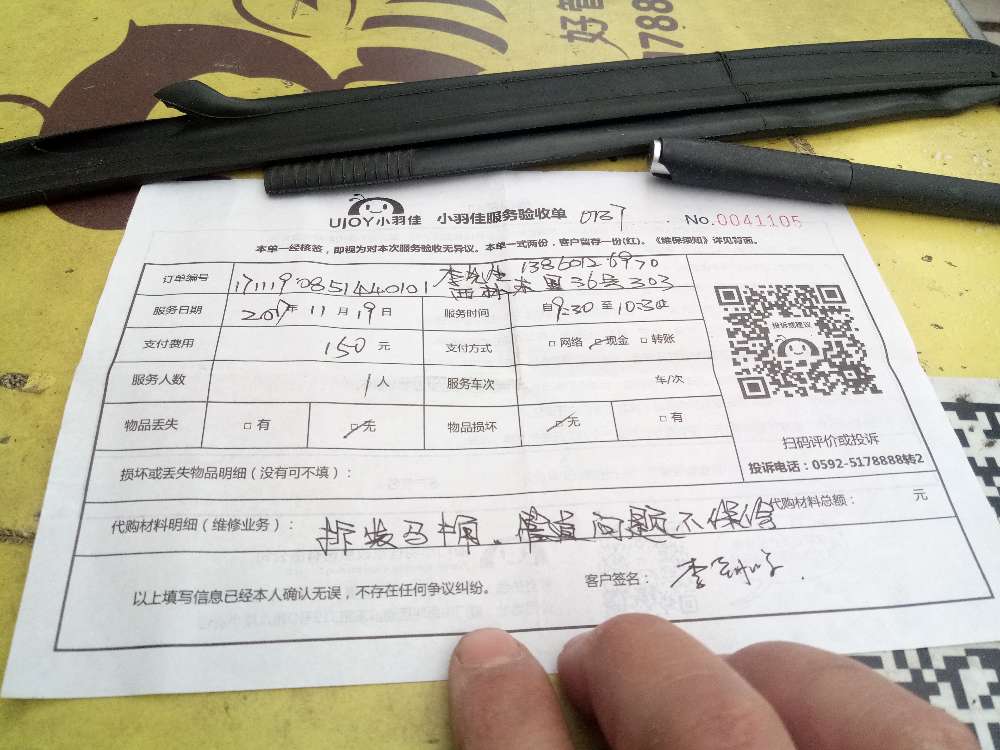 好管
788
UJOY小羽佳 小羽佳服务验收单 0737 No.0041105
本单一经核签，即视为对本次服务验收无异议。本单一式两份，客户留存一份(红)。《维保须知》详见背面。
订单编号 1711190851440101 李先生 13860126970
西林东里36号303
服务日期 2017年 11月19日 服务时间 自9:30至10:30止
支付费用 150元 支付方式 □网络 □现金 □转账
服务人数 1人 服务车次 车/次
物品丢失 □有 □无 物品损坏 □无 □有
投诉或建议
扫码评价或投诉
投诉电话：0592-5178888转2
损坏或丢失物品明细（没有可不填）：
代购材料明细（维修业务）： 拆装马桶. 问题不保修 代购材料总额： 元
以上填写信息已经本人确认无误，不存在任何争议纠纷。 客户签名： 李